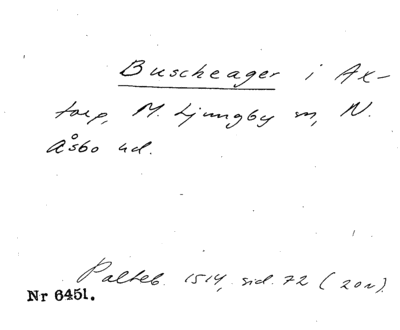 Buscheager i Ax-
torp, M. Ljungby sn, N.
Åsbo hd.
Palteb. 1514, sid. 72 (20n).
Nr 6451.